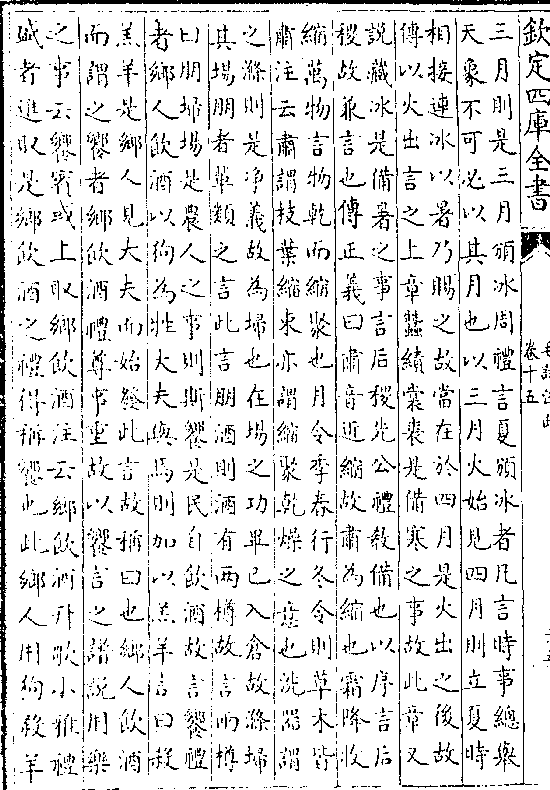 欽定四庫全書
卷十五
三月則是三月頒冰周禮言夏頒冰者凡言時事總舉
天象不可必以其月也以三月火始見四月則立夏時
相接連冰以暑乃賜之故當在於四月是火出之後故
傳以火出言之上章蠶績裳裘是備寒之事故此章又
說藏冰是備暑之事言后稷先公禮教備也以序言后
稷故兼言也傳正義曰肅音近縮故肅為縮也霜降收
縮萬物言物乾而縮聚也月令季春行冬令則草木皆
肅注云肅謂枝葉縮束亦謂縮聚乾燥之意也洗器謂
之滌則是淨義故為埽也在場之功畢已入倉故滌埽
其場朋者輩類之言此言朋酒則酒有兩樽故言兩樽
曰朋埽場是農人之事則斯饗是民自飲酒故言饗禮
者鄉人飲酒以狗為牲大夫與焉則加以羔羊言曰殺
羔羊是鄉人見大夫而始發此言故稱曰也鄉人飲酒
而謂之饗者鄉飲酒禮尊事重故以饗言之譜說用樂
之事云饗賓或上取鄉飲酒注云鄉飲酒升歌小雅禮
盛者進取是鄉飲酒之禮得稱饗也此鄉人用狗殺羊